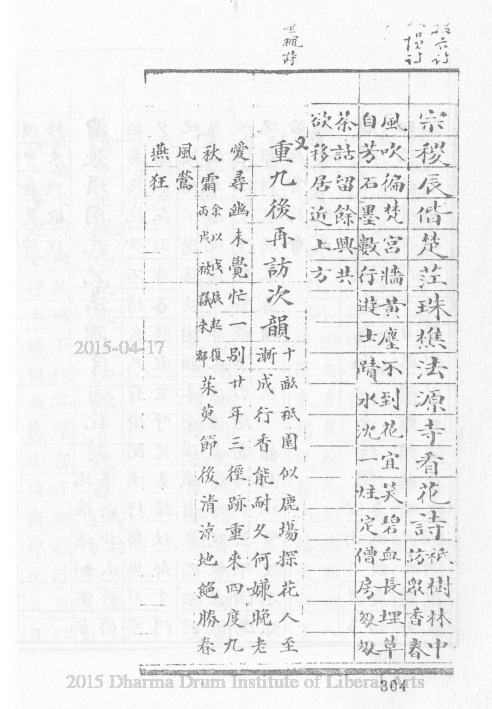 世祖詩
宗稷辰偕楚茳珠樵法源寺看花詩 祇樹林中訪衆香春
風吹徧梵宮牆黃塵不到花宜笑碧血長埋草
自芳石墨數行遊士蹟水沈一炷定僧房匆匆
茶話留餘興共
欲移居近上方
又
重九後再訪次韻 十畝祇園似鹿場探花人至漸成行香能耐久何嫌晚老
愛尋幽未覺忙一別廿年三徑跡重來四度九
秋霜 余以戊辰起復丙戌被議來都 茱萸節後清涼地絕勝春
風鶯
燕狂
2015-04-17
2015 Dharma Drum Institute of Liberal Arts
304